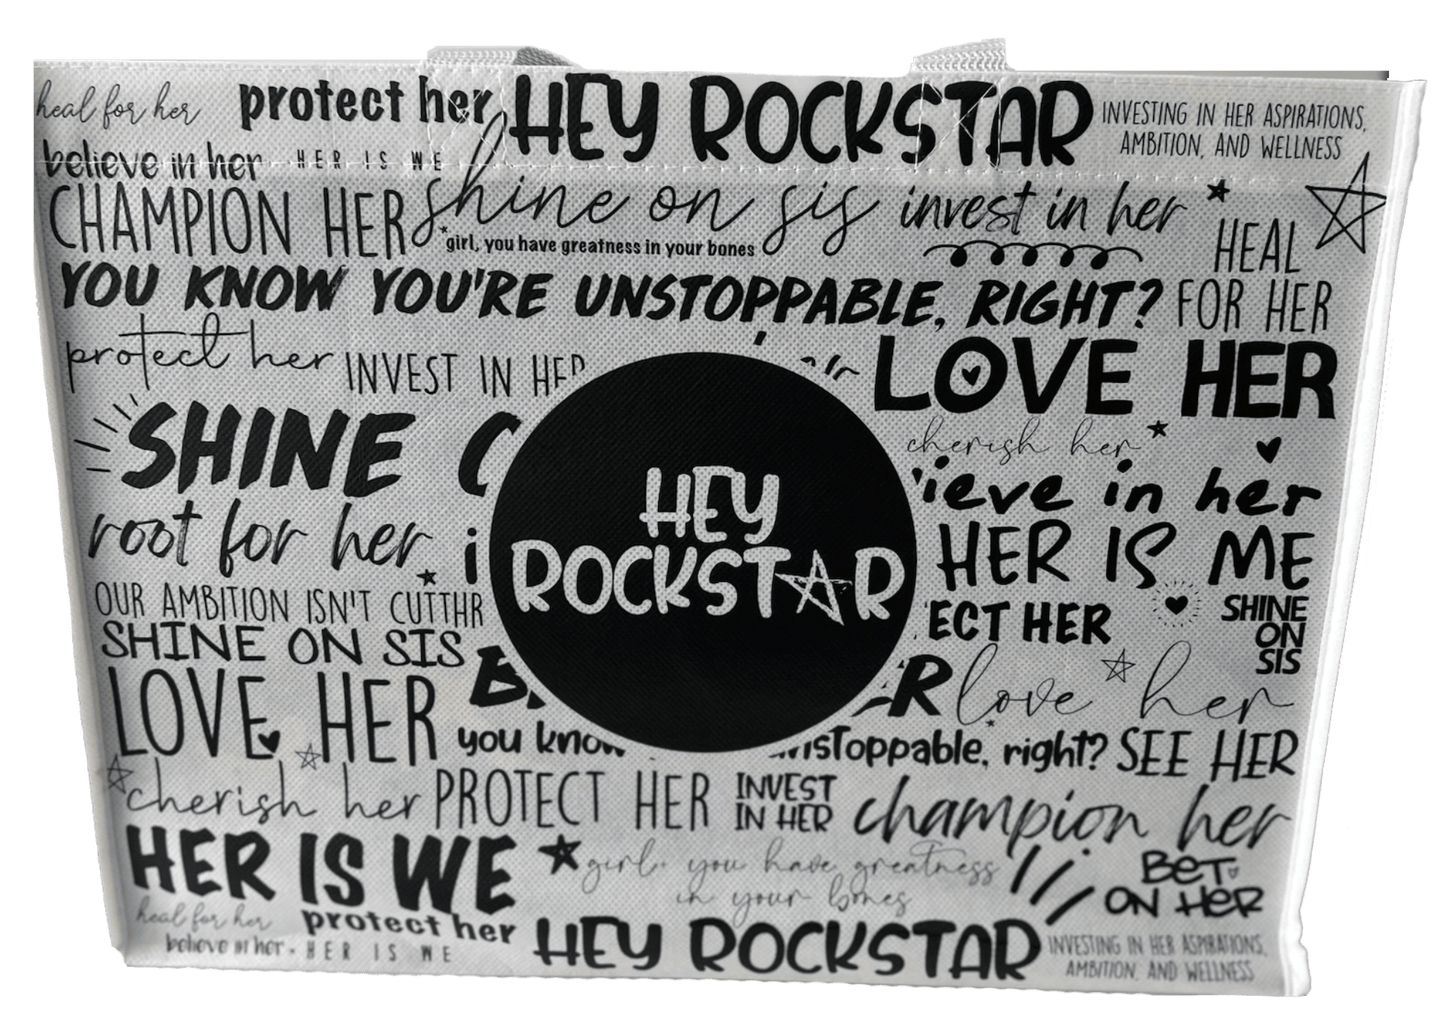 heal for her protect her HEY ROCKSTAR INVESTING IN HER ASPIRATIONS,
AMBITION, AND WELLNESS
believe in her HER IS WE
CHAMPION HER shine on sis invest in her
*girl, you have greatness in your bones
HEAL
FOR HER
YOU KNOW YOU'RE UNSTOPPABLE, RIGHT?
protect her INVEST IN HER LOVE HER
cherish her
SHINE
ieve in her
HEY
ROCKSTAR
root for her i HER IS ME
OUR AMBITION ISN'T CUTTHR ECT HER SHINE
ON
SIS
SHINE ON SIS
LOVE HER B R love her
you know unstoppable, right? SEE HER
cherish her PROTECT HER INVEST
IN HER champion her
HER IS WE girl, you have greatness
in your bones
BET
ON HER
heal for her protect her HEY ROCKSTAR INVESTING IN HER ASPIRATIONS,
AMBITION, AND WELLNESS
believe in her. HER IS WE